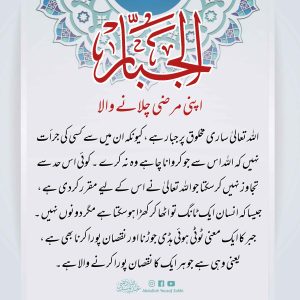 الجَبَّارُ
اپنی مرضی چلانے والا
اللہ تعالیٰ ساری مخلوق پر جبار ہے، کیونکہ ان میں سے کسی کی جرأت
نہیں کہ اللہ اس سے جو کروانا چاہے وہ نہ کرے۔ کوئی اس حد سے
تجاوز نہیں کر سکتا جو اللہ تعالیٰ نے اس کے لیے مقرر کر دی ہے،
جیسا کہ انسان ایک ٹانگ تو اٹھا کر کھڑا ہو سکتا ہے مگر دونوں نہیں۔
جبر کا ایک معنی ٹوٹی ہوئی ہڈی جوڑنا اور نقصان پورا کرنا بھی ہے،
یعنی وہی ہے جو ہر ایک کا نقصان پورا کرنے والا ہے۔